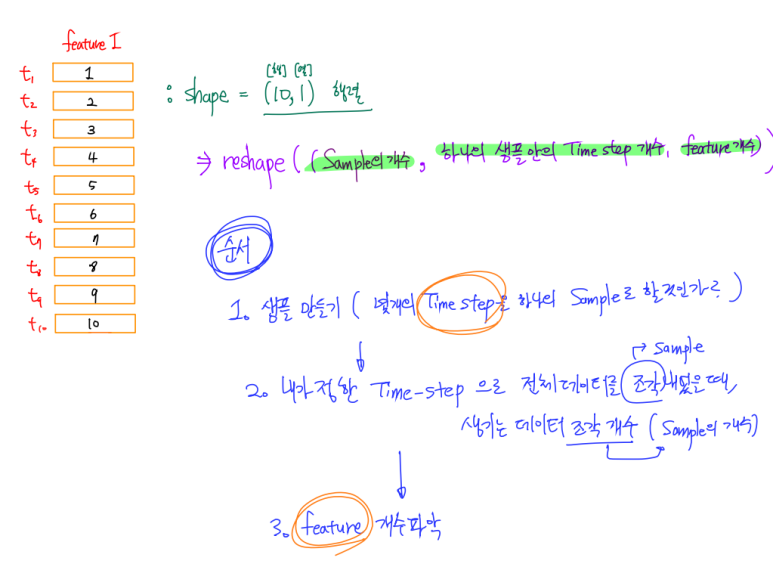 feature 1
t₁ 1
t₂ 2
t₃ 3
t₄ 4
t₅ 5
t₆ 6
t₇ 7
t₈ 8
t₉ 9
t₁₀ 10
[행] [열]
: shape = (10,1) 행렬
⇒ reshape((Sample의 개수, 하나의 샘플안의 Time step 개수, feature 개수))
순서
1. 샘플 만들기 ( 몇개의 Time step을 하나의 Sample로 할것인가? )
→ Sample
2. 내가 정한 Time-step 으로 전체 데이터를 조각내었을때,
생기는 데이터 조각 개수 ( Sample의 개수)
3. feature 개수파악